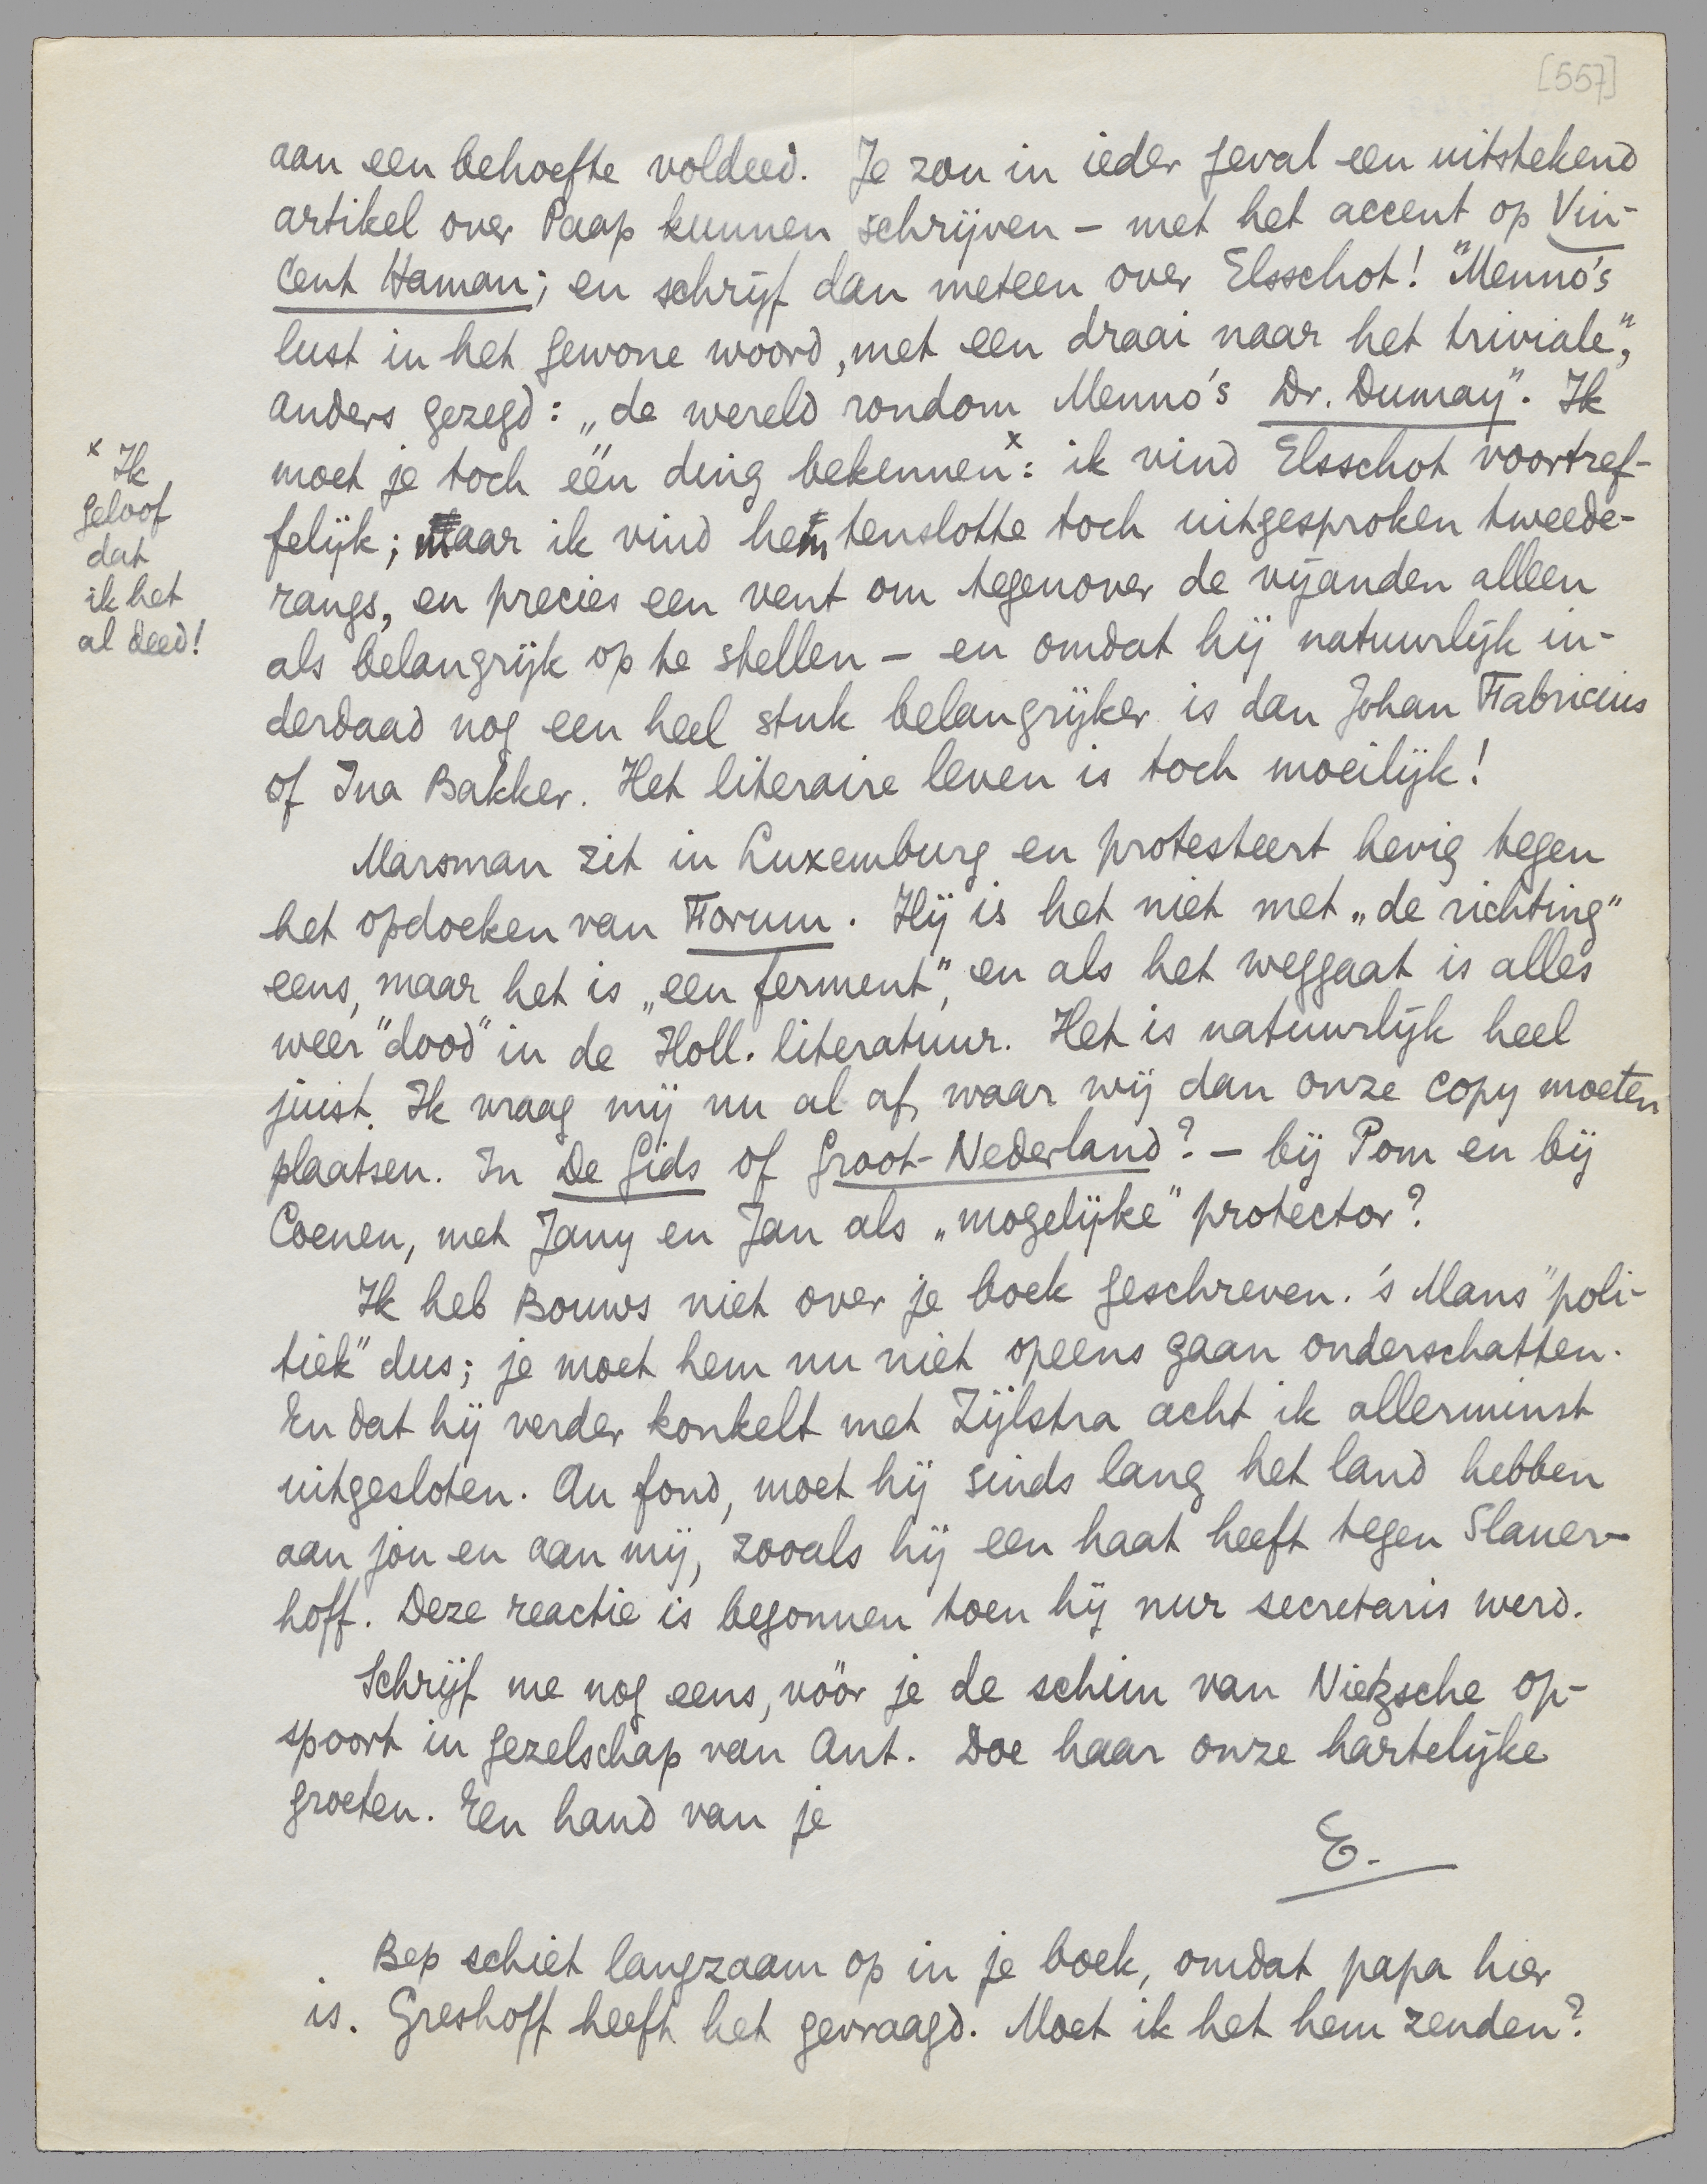 [557]
aan een behoefte voldeed. Je zou in ieder geval een uitstekend
artikel over Paap kunnen schrijven – met het accent op Vin-
cent Haman; en schrijf dan meteen over Elsschot! "Menno's
lust in het gewone woord, met een draai naar het triviale",
anders gezegd: „de wereld rondom Menno's Dr. Dumay". Ik
moet je toch één ding bekennen x: ik vind Elsschot voortref-
felijk; maar ik vind hem tenslotte toch uitgesproken tweede-
rangs, en precies een vent om tegenover de vijanden alleen
als belangrijk op te stellen – en omdat hij natuurlijk in-
derdaad nog een heel stuk belangrijker is dan Johan Fabricius
of Ina Bakker. Het literaire leven is toch moeilijk!
x Ik
geloof
dat
ik het
al deed!
Marsman zit in Luxemburg en protesteert hevig tegen
het opdoeken van Forum. Hij is het niet met „de richting"
eens, maar het is „een ferment", en als het weggaat is alles
weer "dood" in de Holl. literatuur. Het is natuurlijk heel
juist. Ik vraag mij nu al af, waar wij dan onze copy moeten
plaatsen. In De Gids of Groot-Nederland? – bij Pom en bij
Coenen, met Jany en Jan als „mogelijke" protector?
Ik heb Bouws niet over je boek geschreven. 's Mans "poli-
tiek" dus; je moet hem nu niet opeens gaan onderschatten.
En dat hij verder konkelt met Zijlstra acht ik allerminst
uitgesloten. Au fond, moet hij sinds lang het land hebben
aan jou en aan mij, zooals hij een haat heeft tegen Slauer-
hoff. Deze reactie is begonnen toen hij nur secretaris werd.
Schrijf me nog eens, vóór je de schim van Nietzsche op-
spoort in gezelschap van Ant. Doe haar onze hartelijke
groeten. Een hand van je
E.
Bep schiet langzaam op in je boek, omdat papa hier
is. Greshoff heeft het gevraagd. Moet ik het hem zenden?